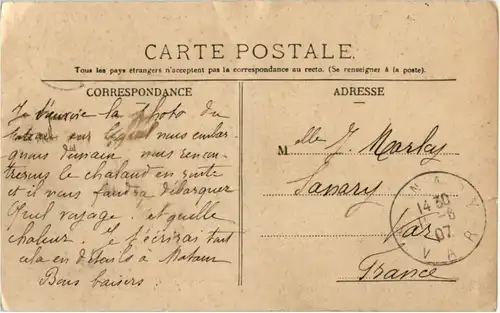 CARTE POSTALE.
Tous les pays étrangers n'acceptent pas la correspondance au recto. (Se renseigner à la poste).
CORRESPONDANCE
Je t'envoie la photo du
bateau sur lequel nous embar-
quons demain nous rencon-
trerons le chaland en route
et il nous faudra débarquer
Quel voyage. et quelle
chaleur. Je t'écrirai tout
cela en détails à
Bons baisers
ADRESSE
Melle J. Marlas
Sanary
Var
France
14 30
-6
07
VAR